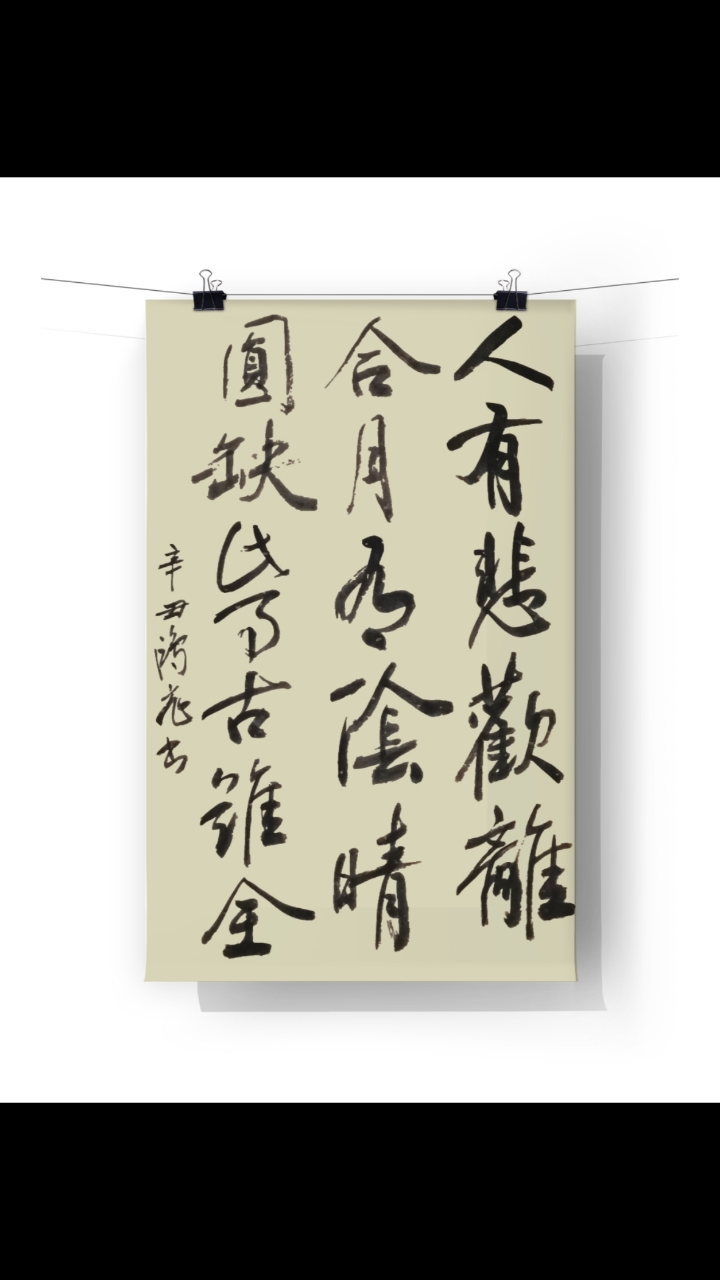 人有悲歡離
合月有陰晴
圓缺此事古難全
辛丑 书